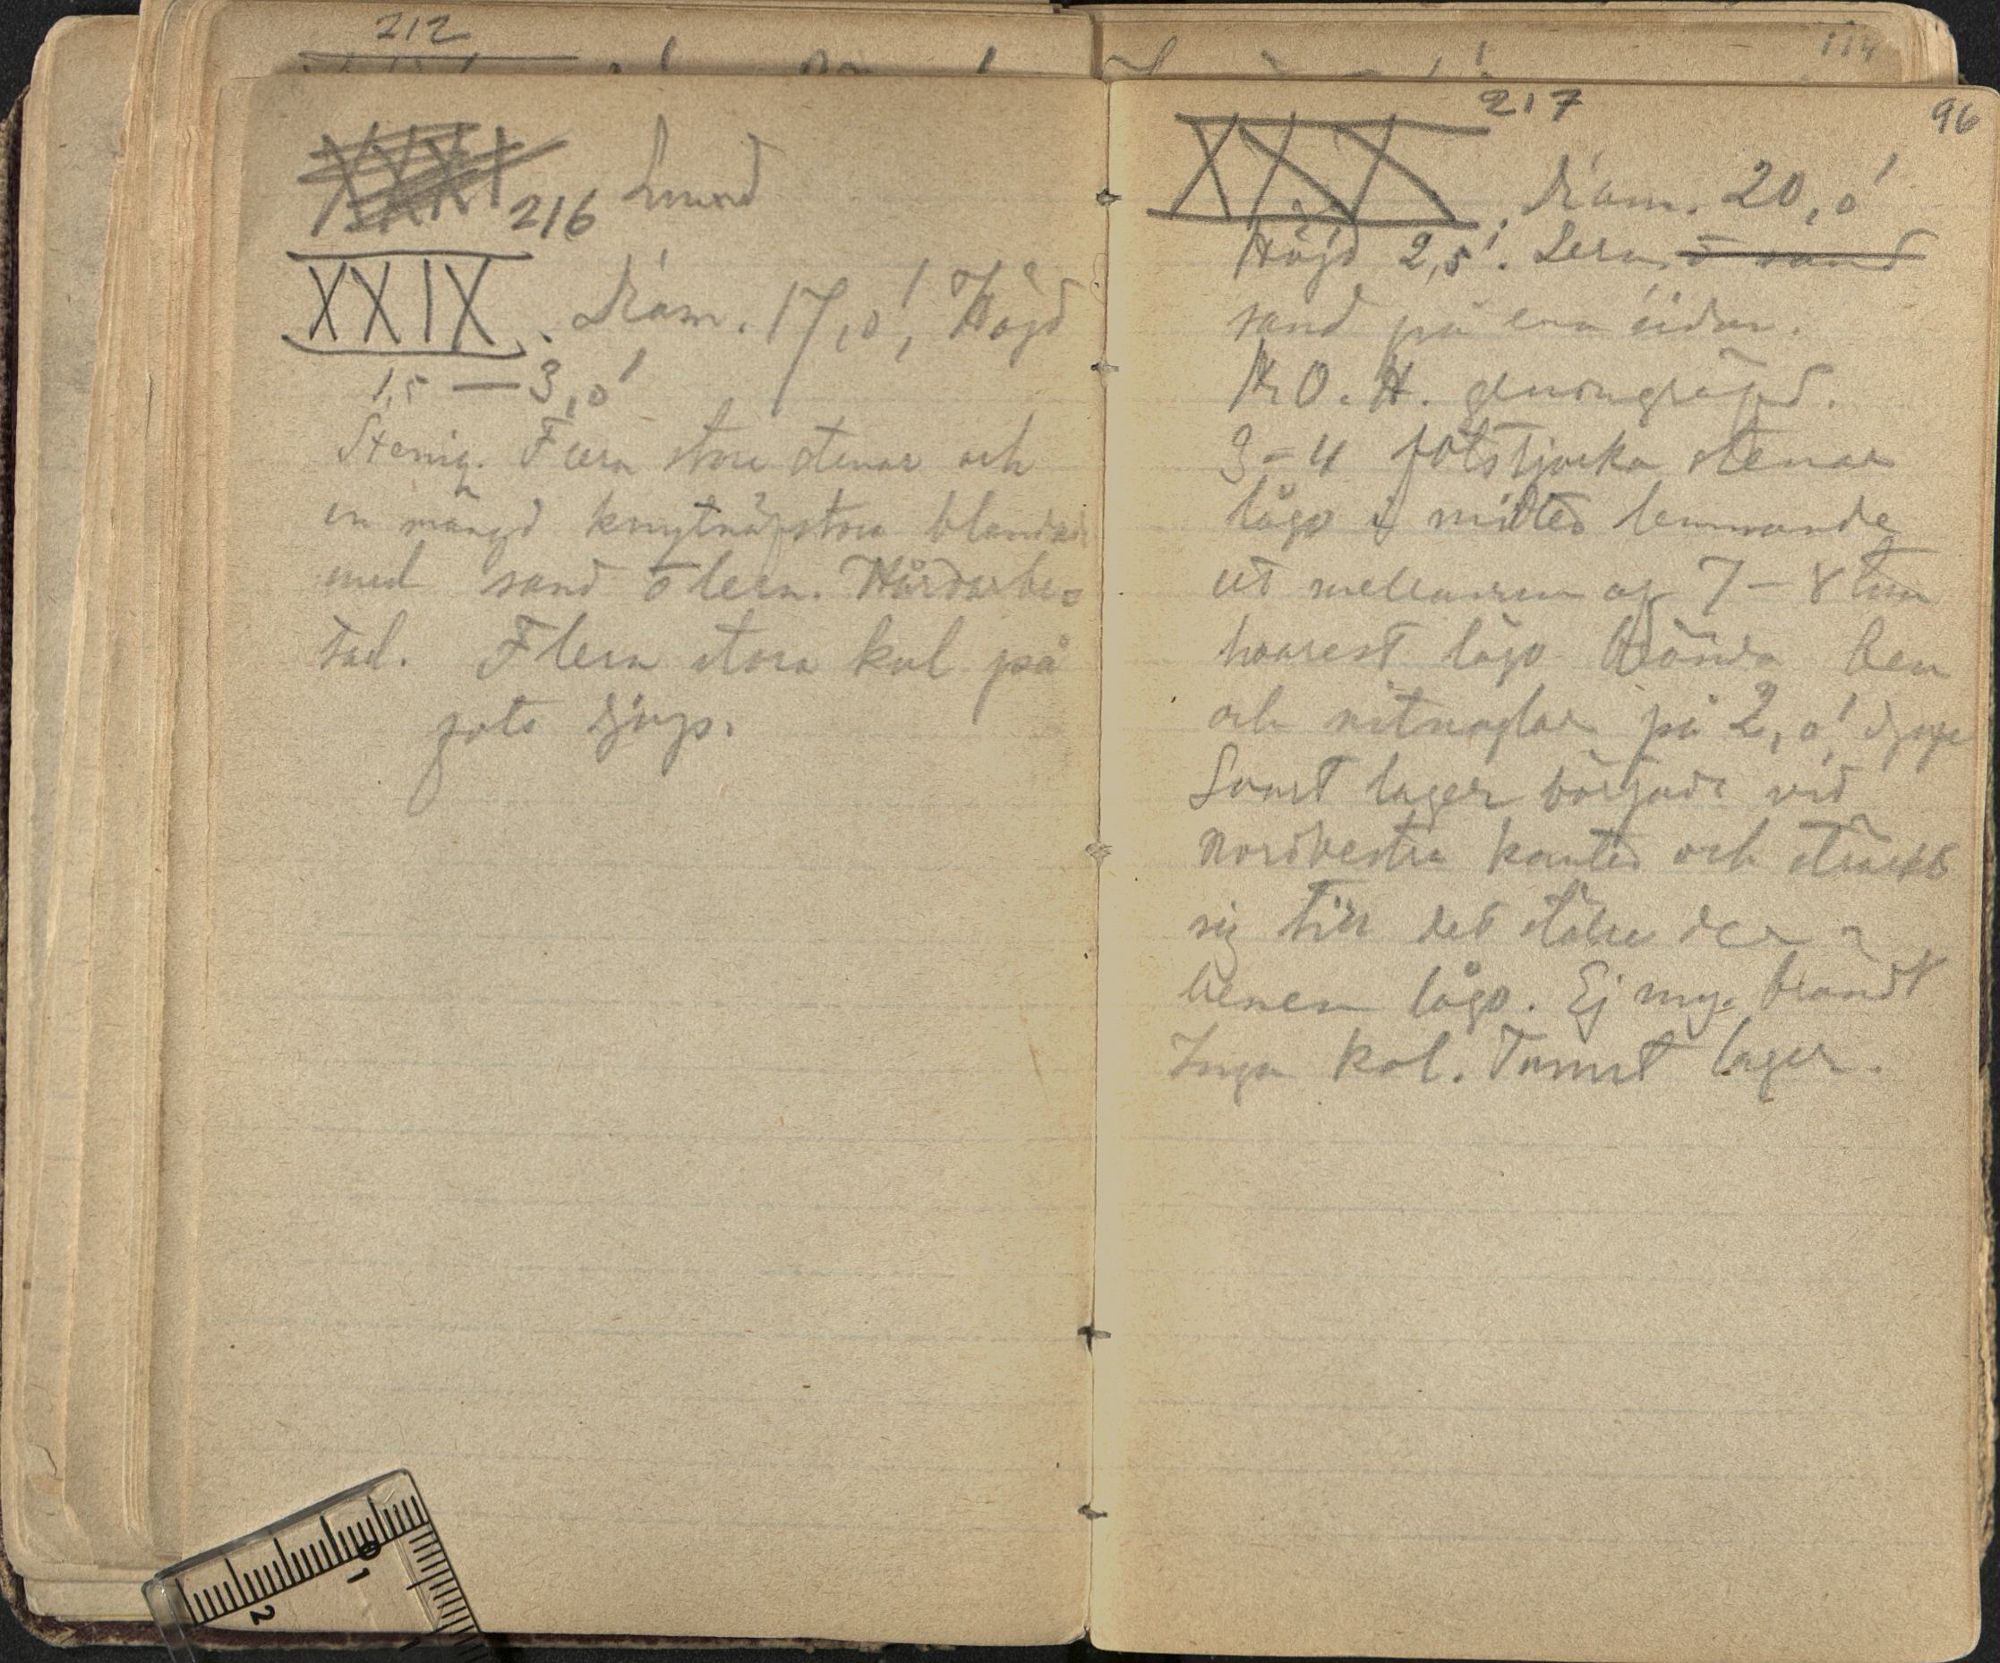 212
114
216 Lund
XXIX. Diam. 17,0', Höjd
1,5 — 3,0'
Stenig. Flera stora stenar och
en mängd knytnäfstora blandade
med sand o lera. Hårdarbe-
tad. Flera stora kol på
fots djup.
217
96
XXX. Diam. 20,0'
Höjd 2,5'. Lera, o sand
sand på ena sidan.
K. O. H. genomgräfd.
3-4 fotstjocka stenar
lågo i midten lemnande
ett mellanrum af 7-8 tum
hvarest lågo brända ben
och nitnaglar på 2,0' djup
Svart lager började vid
nordvestra kanten och sträckte
sig till det ställe der
benen lågo. Ej my. brändt
Inga kol. Tunnt lager.